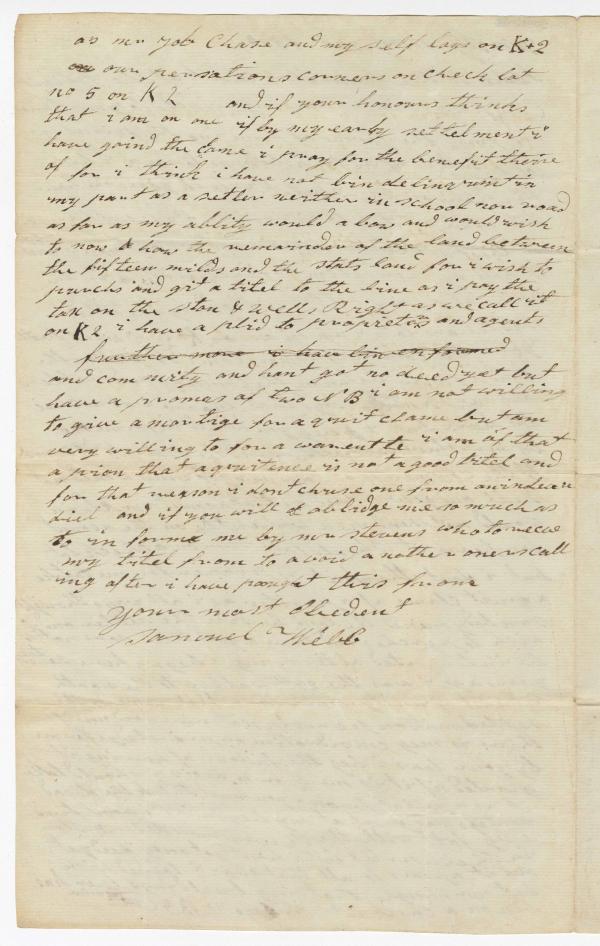 as mr Job Chase and my self lays on K + 2
our persations corners on check lot
no 5 on K 2 and if your honours thinks
that i am on one if by my earby settelment i
have gaind the same i pray for the benefit there
of for i think i have not bin delinquint in
my part as a setler neither in school nor road
as far as my ablity would a low and would wish
to now how the remainder of the land between
the fifteen milds and the stats land for i wish to
purchs and git a titel to the line as i pay the
tax on the ston & Wells Right as we call it
on K2 i have a plid to propreters and agents
further more i hav bin enformed
and com nity and hant got no deed yat but
have a promas of two NB i am not willing
to give a mortige for a quit clame but am
very willing to for a warente i am of that
a pion that a quitence is not a good titel and
for that reason i dont chuse one from an indever
diel and if you will ablidge me so much as
to in forme me by mr stevens who to receve
my titel from to avoid a nother oners call
ing after i have pought this from
your most Obedent
Samuel Webb